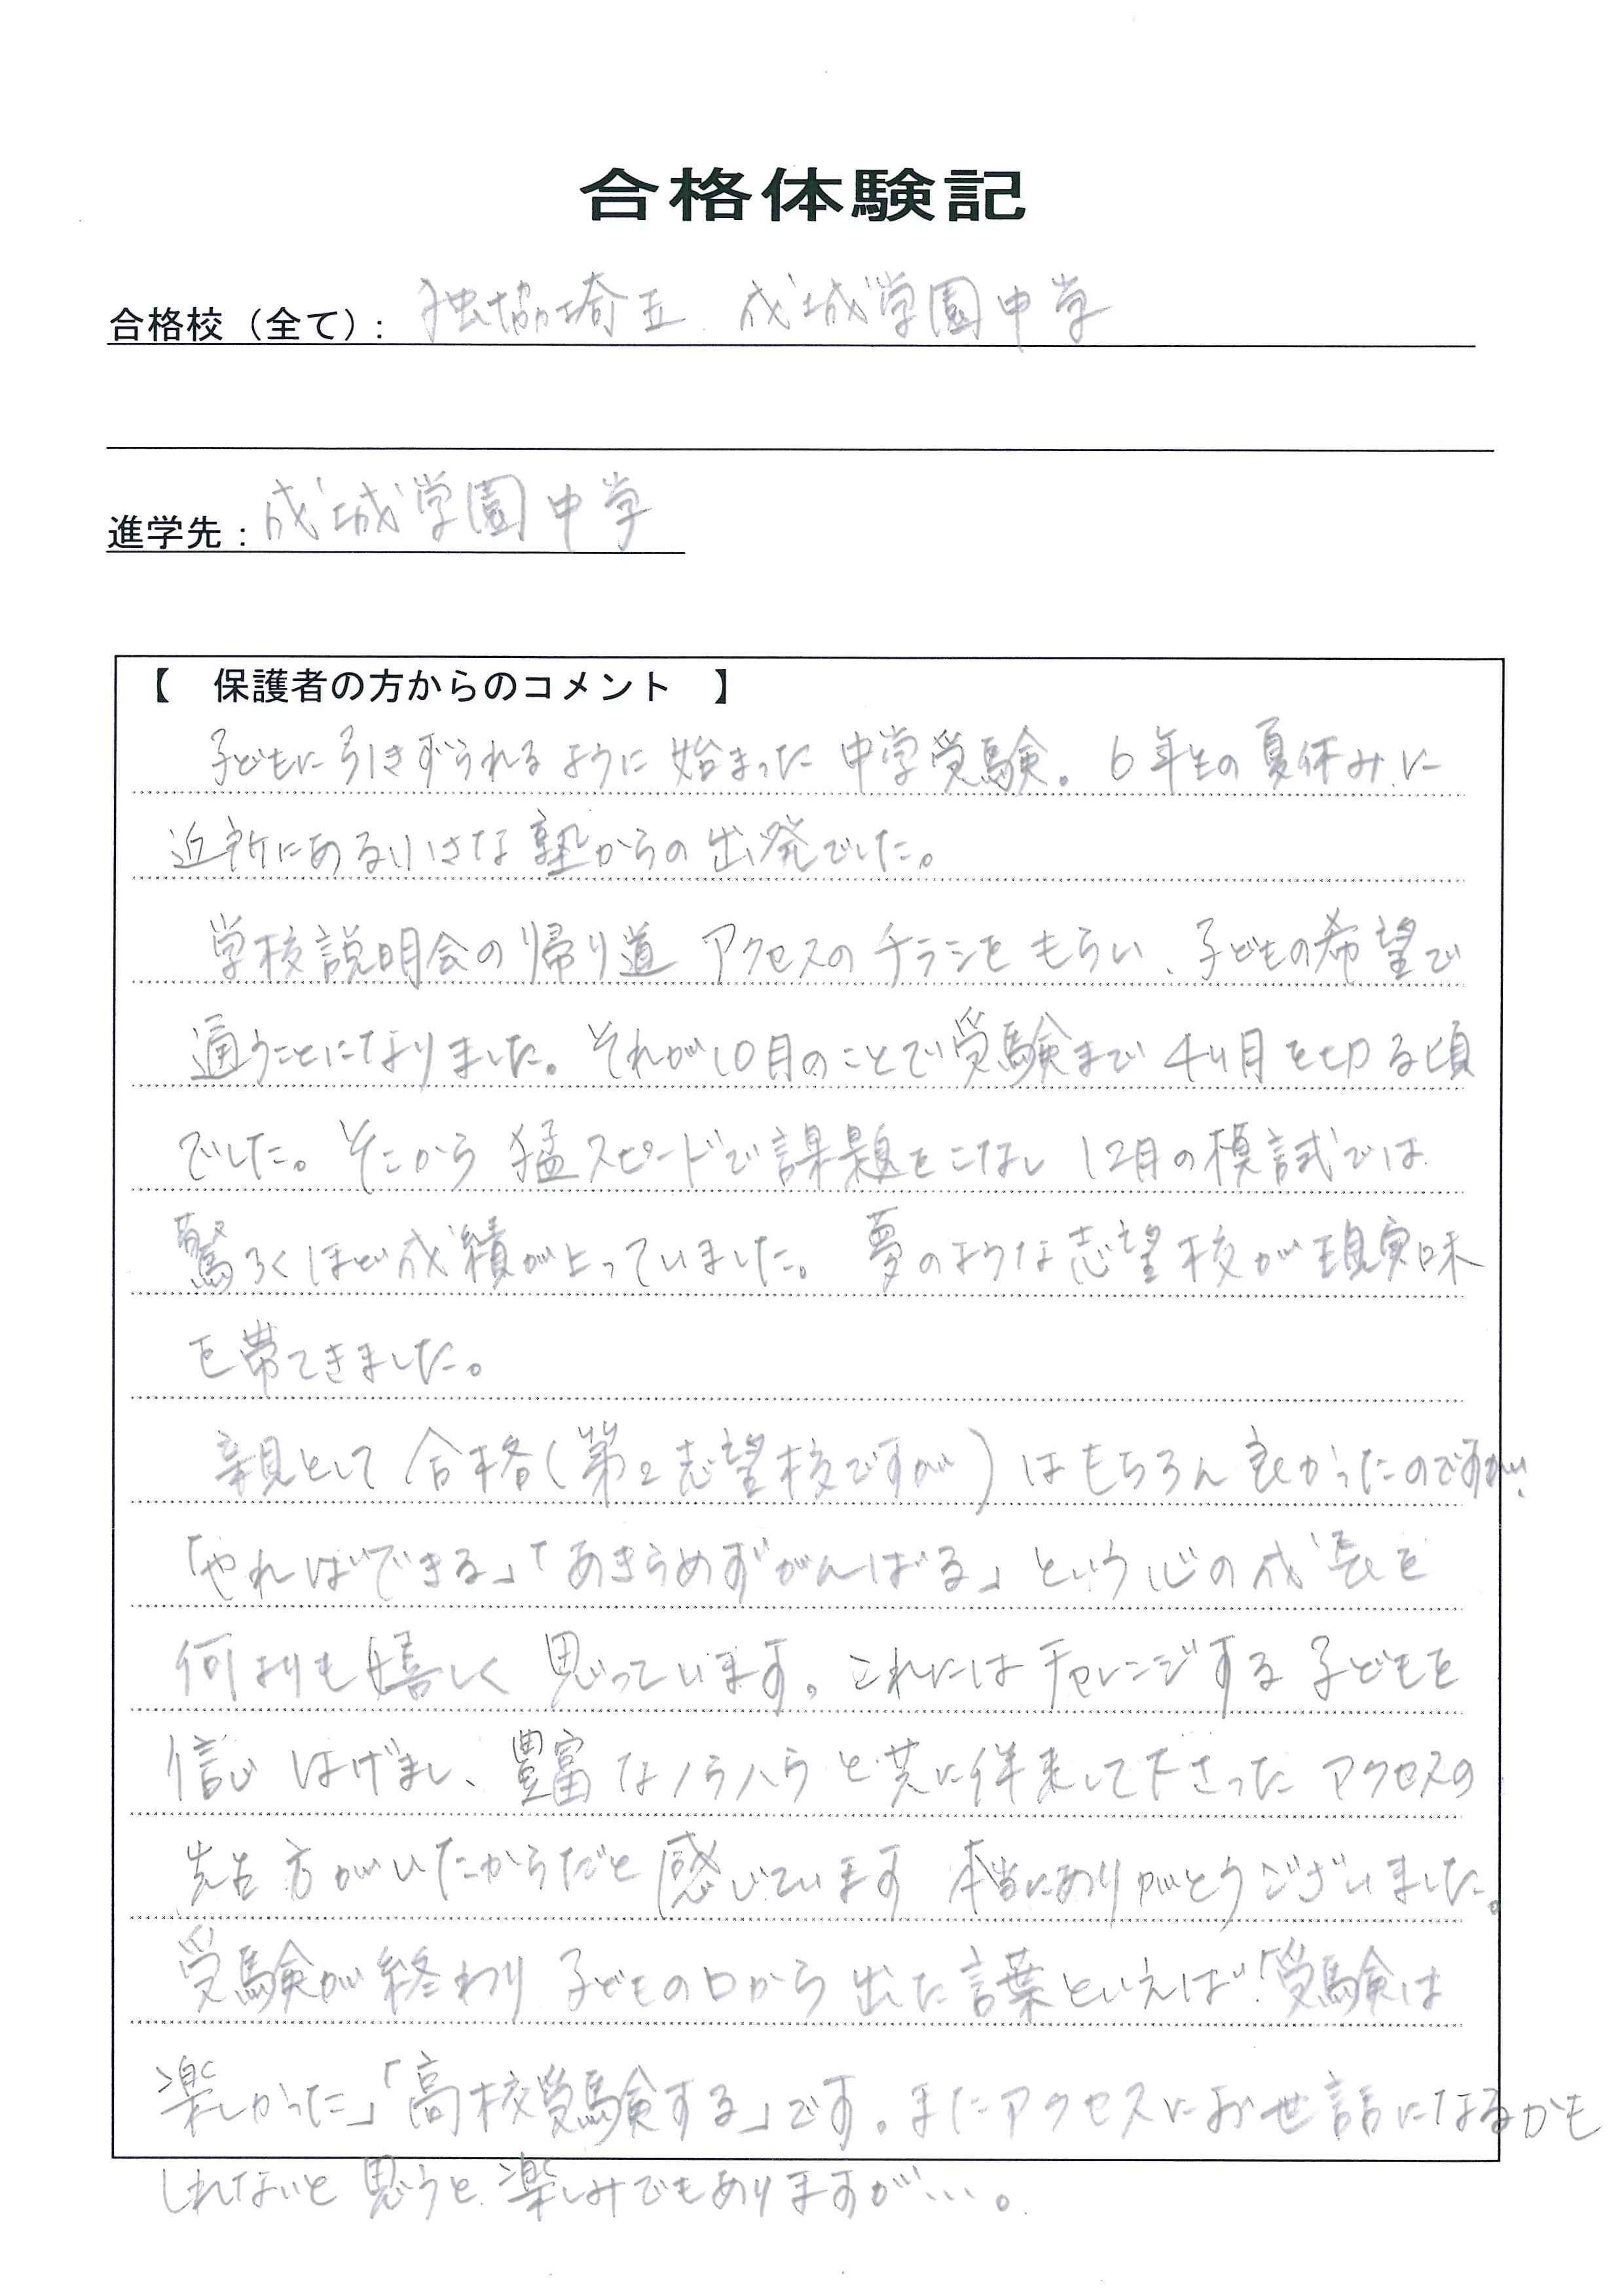 合格体験記
合格校（全て）: 独協埼玉 成城学園中学
進学先：成城学園中学
【　保護者の方からのコメント　】
子どもに引きずられるように始まった中学受験。6年生の夏休みに
近所にある小さな塾からの出発でした。
学校説明会の帰り道 アクセスのチラシをもらい、子どもの希望で
通うことになりました。それが10月のことで受験まで4ヶ月を切る頃
でした。そこから猛スピードで課題をこなし 12月の模試では
驚ろくほど成績が上っていました。夢のような志望校が現実味
を帯てきました。
親として合格（第2志望校ですが）はもちろん良かったのですが、
「やればできる」「あきらめずがんばる」という心の成長を
何よりも嬉しく思っています。これにはチャレンジする子どもを
信じ はげまし、豊富なノウハウと共に伴走して下さったアクセスの
先生方がいたからだと感じています 本当にありがとうございました。
受験が終わり 子どもの口から出た言葉といえば「受験は
楽しかった」「高校受験する」です。またアクセスにお世話になるかも
しれないと思うと楽しみでもありますが…。